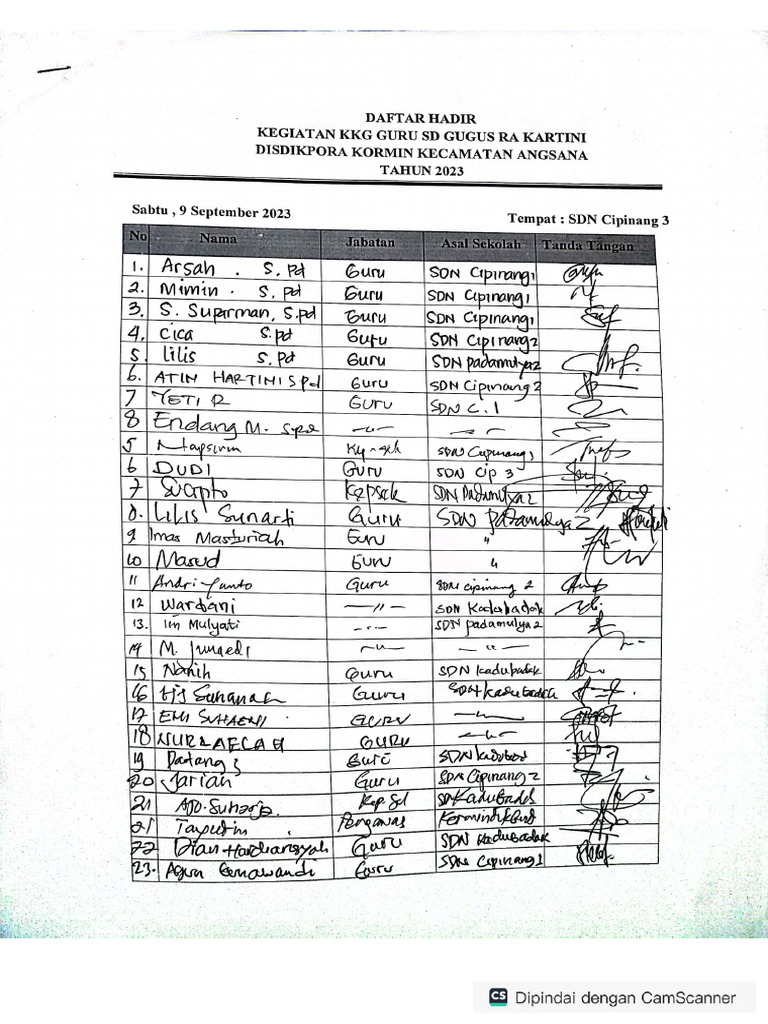 DAFTAR HADIR
KEGIATAN KKG GURU SD GUGUS RA KARTINI
DISDIKPORA KORMIN KECAMATAN ANGSANA
TAHUN 2023
Sabtu , 9 September 2023
Tempat : SDN Cipinang 3
No Nama Jabatan Asal Sekolah Tanda Tangan
1. Arsah . S.Pd Guru SDN Cipinang1
2. Mimin . S.Pd Guru SDN Cipinang1
3. S. Suparman, S.Pd Guru SDN Cipinang1
4. Cica S.Pd Guru SDN Cipinang2
5. Lilis S.Pd Guru SDN Padamulya2
6. ATIN HARTINI S Pd Guru SDN Cipinang 2
7 YETI R Guru SDN C.1
8 Endang M. S.Pd -〃- -〃-
5 SDN Cipinang 1
6 DUDI Guru SDN Cip 3
7 Sucipto Kepsek SDN Padamulya 2
8. Lilis Sunarti Guru SDN Padamulya 2
9 Imas Masturiah Guru 〃
10 Masud Guru 〃
11 Andri Yanto Guru SDN Cipinang 2
12 Wardani -〃- SDN Kadubadak
13. Iin Mulyati -〃- SDN Padamulya 2
14 M. Junaedi -〃- -〃-
15 Nanih Guru SDN Kadubadak
16 Iis Suhanah Guru SDN Kadubadak
17 ENI SUHAENI GURU -〃-
18 NURLAELAH GURU -〃-
19 Guru SDN
20 Jariah Guru SDN Cipinang 2
21 Kep. Sd SD Kadubadak
21 Tajudin Pengawas
22 Dian Hardiansyah Guru SDN Kadubadak
23. Agun Gunawandi Guru SDN Cipinang1
CS Dipindai dengan CamScanner